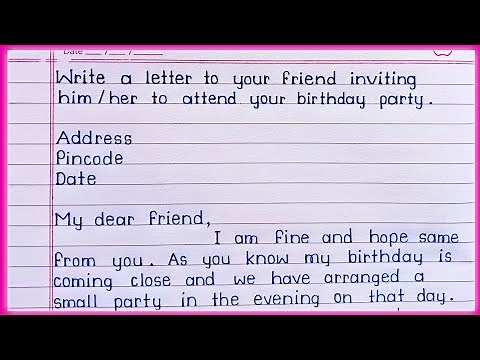 Date / /
Write a letter to your friend inviting
him/her to attend your birthday party.
Address
Pincode
Date
My dear friend,
I am fine and hope same
from you. As you know my birthday is
coming close and we have arranged a
small party in the evening on that day.